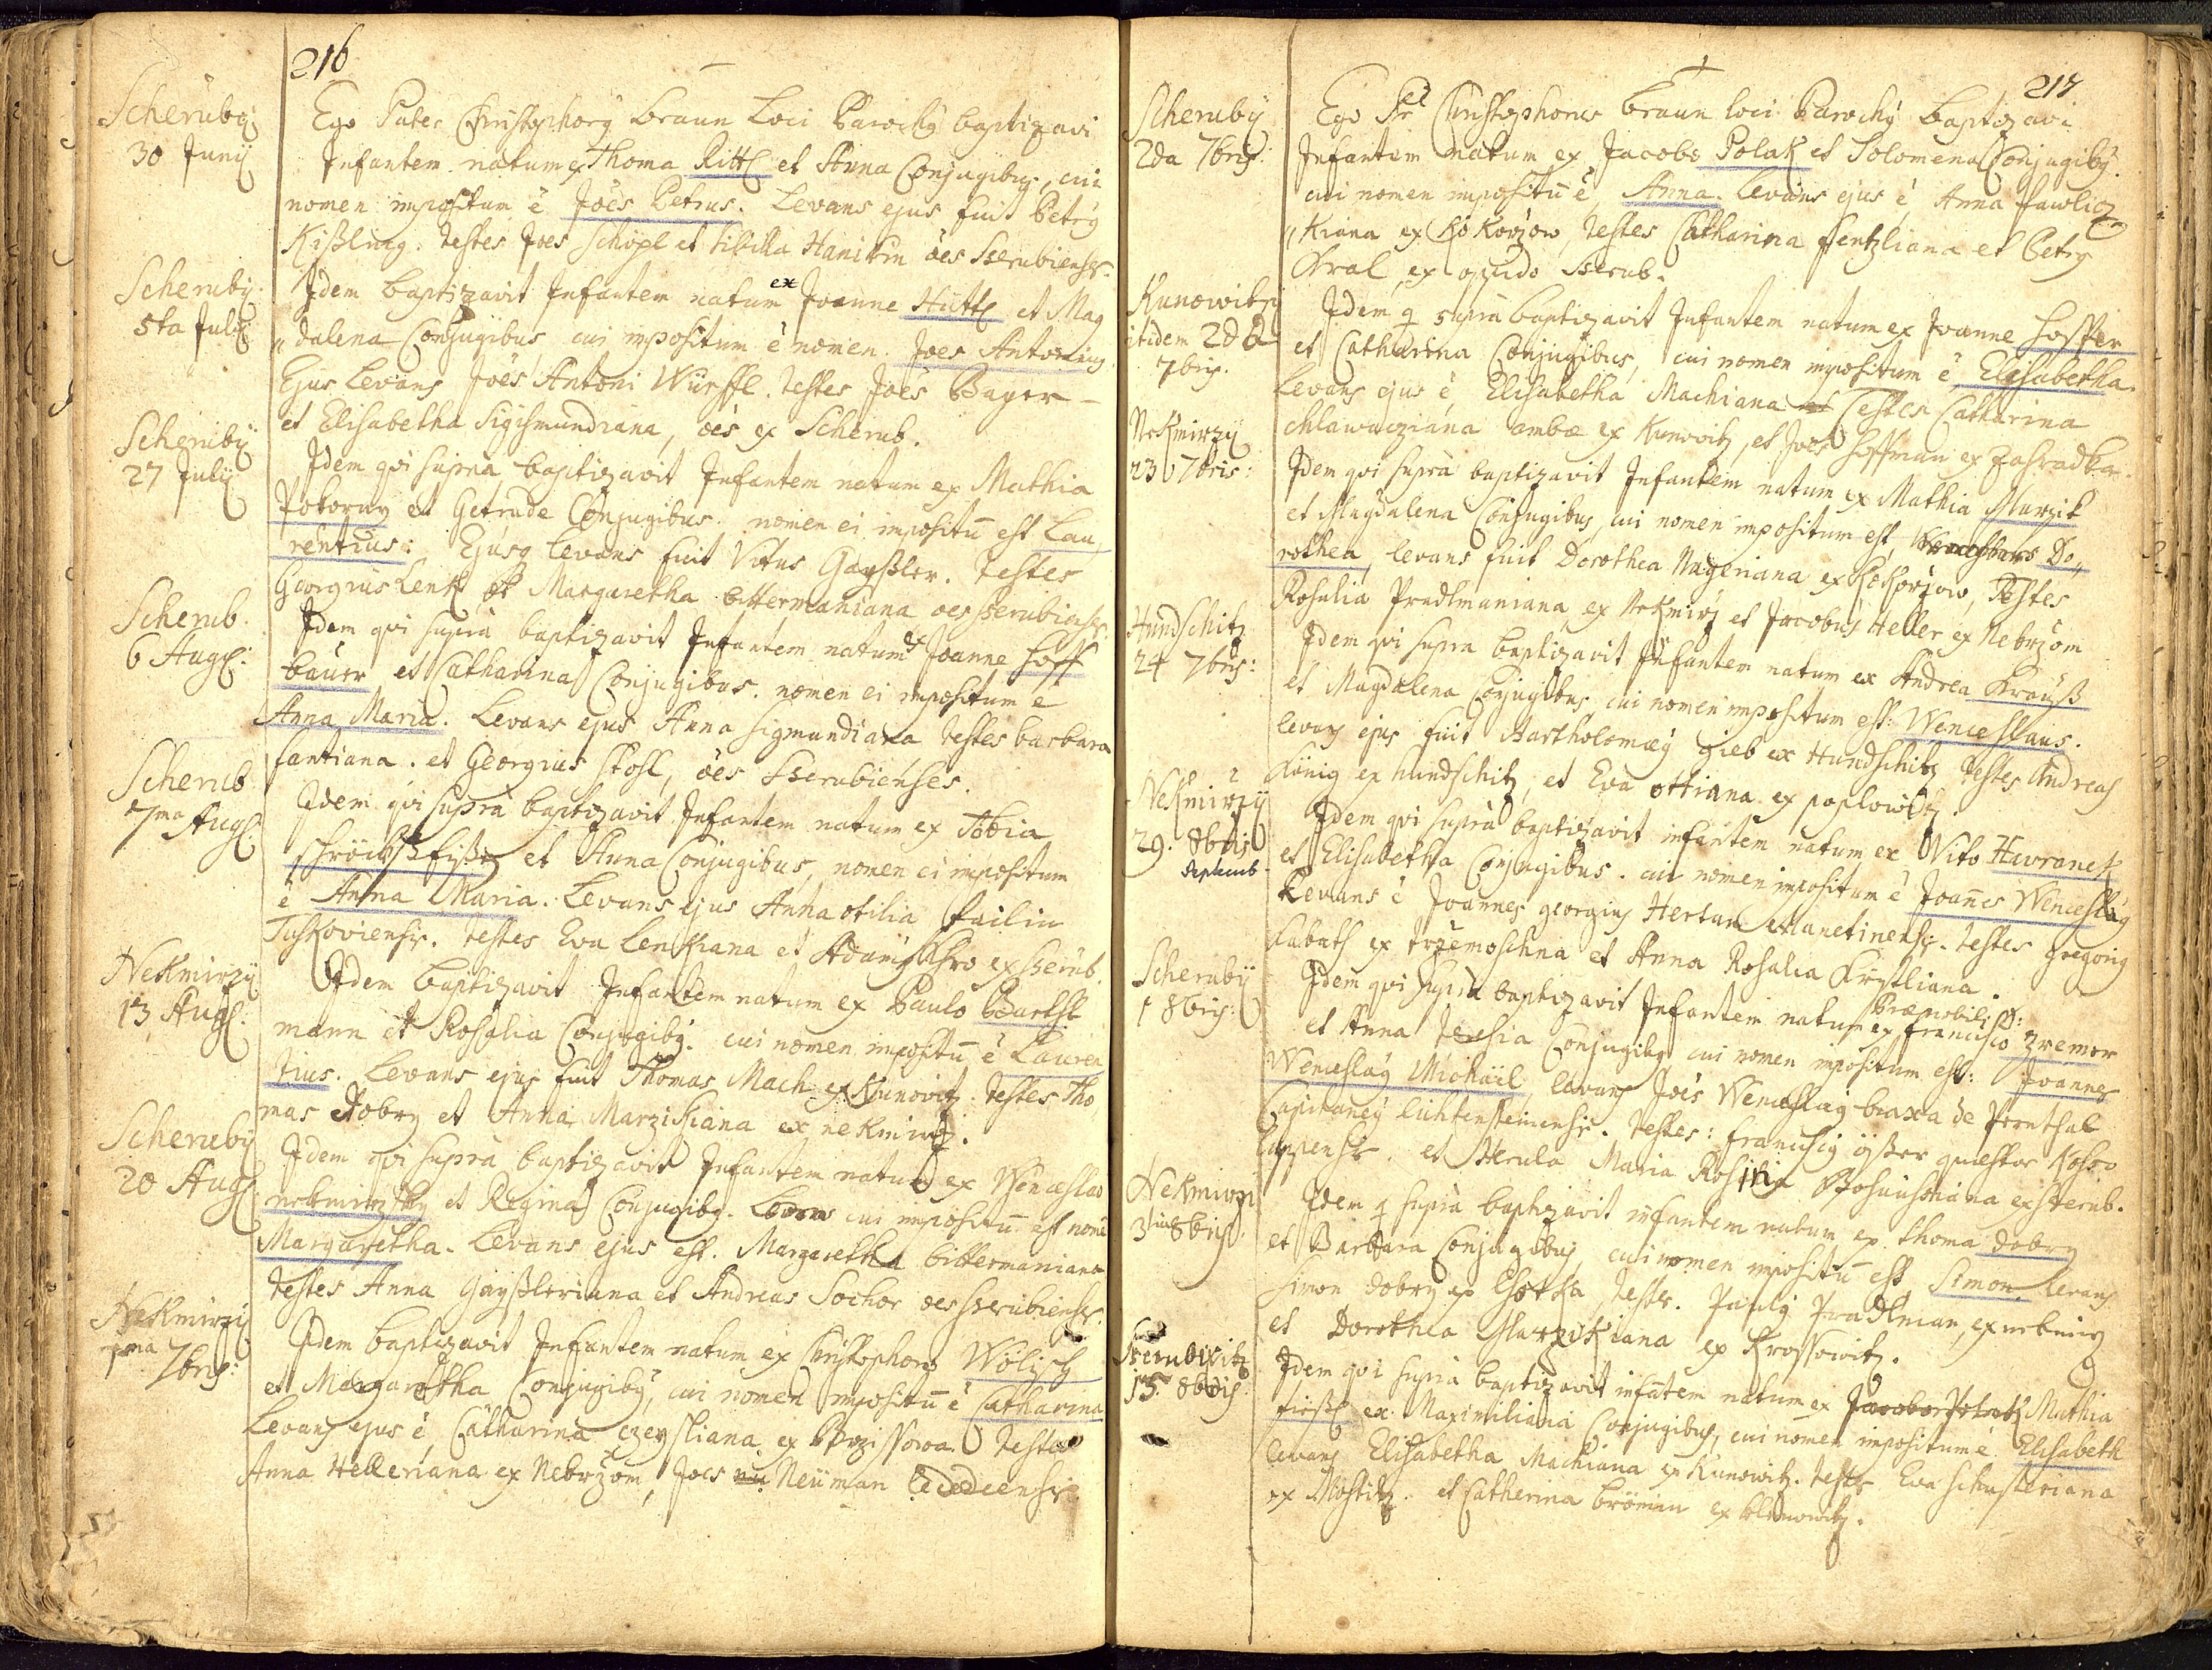 216
Scheruby
30 Junÿ
Ego Pater Christophorg Braun Loci Parochg baptizavi
Infantem natum ex Thoma Rittl et Anna Conjugibus, cui
nomen impositum ē Joēs Petrus. Levans ejus fuit Petrg
Kißling. Testes Joēs Schöpl et Sibilla oēs Sserubienses.
Scheruby
5ta Julÿ
Idem baptizavit Infantem natum ex Joanne Hüttl et Mag
„dalena Conjugibus, cui impositum ē nomen Joēs Antonius
Ejus Levans Joēs Antoni Würffl. Testes Joēs Bayer
et Elisabetha Sigismundiana, oēs ex Scherub.
Scheruby
27 Julÿ
Idem qui supra baptizavit Infantem natum ex Mathia
Pokorny et Getrude Conjugibus. nomen ei impositū est Lau
rentius: Ejusq levans fuit Vitus Gayßler. Testes
Georgius Lenk et Margaretha bittermaniana oēs sserubienses.
Scherub.
6 Augs:
Idem qui supra baptizavit Infantem natum ex Joanne Hoff
bauer et Catharina Conjugibus. nomen ei impositum ē
Anna Maria. Levans ejus Anna Sigmundiana testes barbara
fantiana. et Georgius Stosl, oēs Sserubienses.
Scherub
7ma Augs:
Idem qui supra baptizavit Infantem natum ex Tobia
et Anna Conjugibus, nomen ei impositum
ē Anna Maria. Levans ejus Anna otilia failin
Tuskoviensis. testes Eva Lenkiana et Adamg ex sserub.
Nekmirzÿ
13 Augs:
Idem baptizavit Infantem natum ex Paulo Bartht
mann et Rosalia Conjugibg. cui nomen impositū ē Lauren
tius. Levans ejus fuit Thomas Mach ex Kunovitz. testes Tho
mas Dobry et Anna Marzikiana ex nekmirz.
Scheruby
20 Augs
Idem qui supra baptizavit Infantem natum ex Wenceslao
nekmirzsky et Regina Conjugibg. Levans cui impositū est nomē
Margaretha. Levans ejus est. Margaretha bittermaniana
testes Anna Gayßleriana et Andreas Sochor oēs sserubienses.
Nekmirzÿ
1ma 7bris:
Idem baptizavit Infantem natum ex Christophoro Wölisch
et Margaretha Conjugibg, cui nomen impositū ē Catharina
Levans ejus ē Catharina czeysliana ex Testes
Anna Helleriana ex Nebržom, Joēs Neüman
217
Scheruby
2da 7bris:
Ego Pr Christophorus Braun loci Parochg baptizavi
Infantem natum ex Jacobo Polak et Solomena Conjugibg.
cui nomen impositū ē, Anna. Levans ejus ē Anna Pawlicz
„kiana ex Kokorzow, testes Catharina fentzliana et Petrg
Kral, ex opido sserub.
Kunowitzÿ
itidem 2da
7bris.
Idem q supra baptizavit Infantem natum ex Joanne Hoffer
et Catharina Conjugibus, cui nomen impositum ē Elisabetha.
Levans ejus ē Elisabetha Machiana Testes Catharina
chlawacziana ambæ ex Kunovitz, et Joēs Hoffman ex Zahradka
Nekmirzÿ
23 7bris:
Idem qui supra baptizavit Infantem natum ex Mathia Marzik
et Magdalena Conjugibus, cui nomen impositum est, Do„
rothea, levans fuit Dorothea Nageriana ex Kokorzow, Testes
Rosalia Pradlmaniana, ex Nekmirz et Jacobus Heller ex Nebrzom
Hundschitz
24 7bris:
Idem qui supra baptizavit Infantem natum ex Andrea Krauß
et Magdalena Conjugibus, cui nomen impositum est: Wenceslaus.
levans ejus fuit Bartholomæg Zieb ex Hundschitz, testes Andreas
König ex hundschitz, et Eva ottiana ex poplowitz.
Nekmirzÿ
29. 8bris
Septemb.
Idem qui supra baptizavit infantem natum ex Vito Havranek
et Elisabetha Conjugibus. cui nomen impositum ē Joannes Wenceslag
Levans ē Joannes georgius Hertan Manetinensis. testes Gregorig
Labath ex trzemoschna et Anna Rosalia Kristliana.
Scheruby
1 8bris:
Idem qui supra baptizavit Infantem natum ex Prænobili D: francisco Zremor
et Anna Teresia Conjugibg cui nomen impositum est: Joannes
Wenceslag Michael, levans Joēs Wenceslag braxa de Prenthal
Capitaneg lichtensteinensis. testes: franciscg ÿßer quæstor
et Herula Maria Rosina Bohuschiana ex sserub.
Nekmirzi
3tia 8bris:
Idem q supra baptizavit infantem natum ex thoma dobry
et Barbara Conjugibus, cui nomen impositū est, Simon. Levans
Simon dobry ex Lhotka, testes. Paulg Pradlman, ex nekmirz
et Dorothea Marzikiana ex Krossowitz.
15. 8bris.
Idem qui supra baptizavit infantem natum ex Mathia
et Maximiliana Conjugibus, cui nomen impositum ē Elisabeth
levans Elisabetha Machiana ex Kunowitz. testes Eva schusteriana
ex Mostitz. et Catherina brömin ex